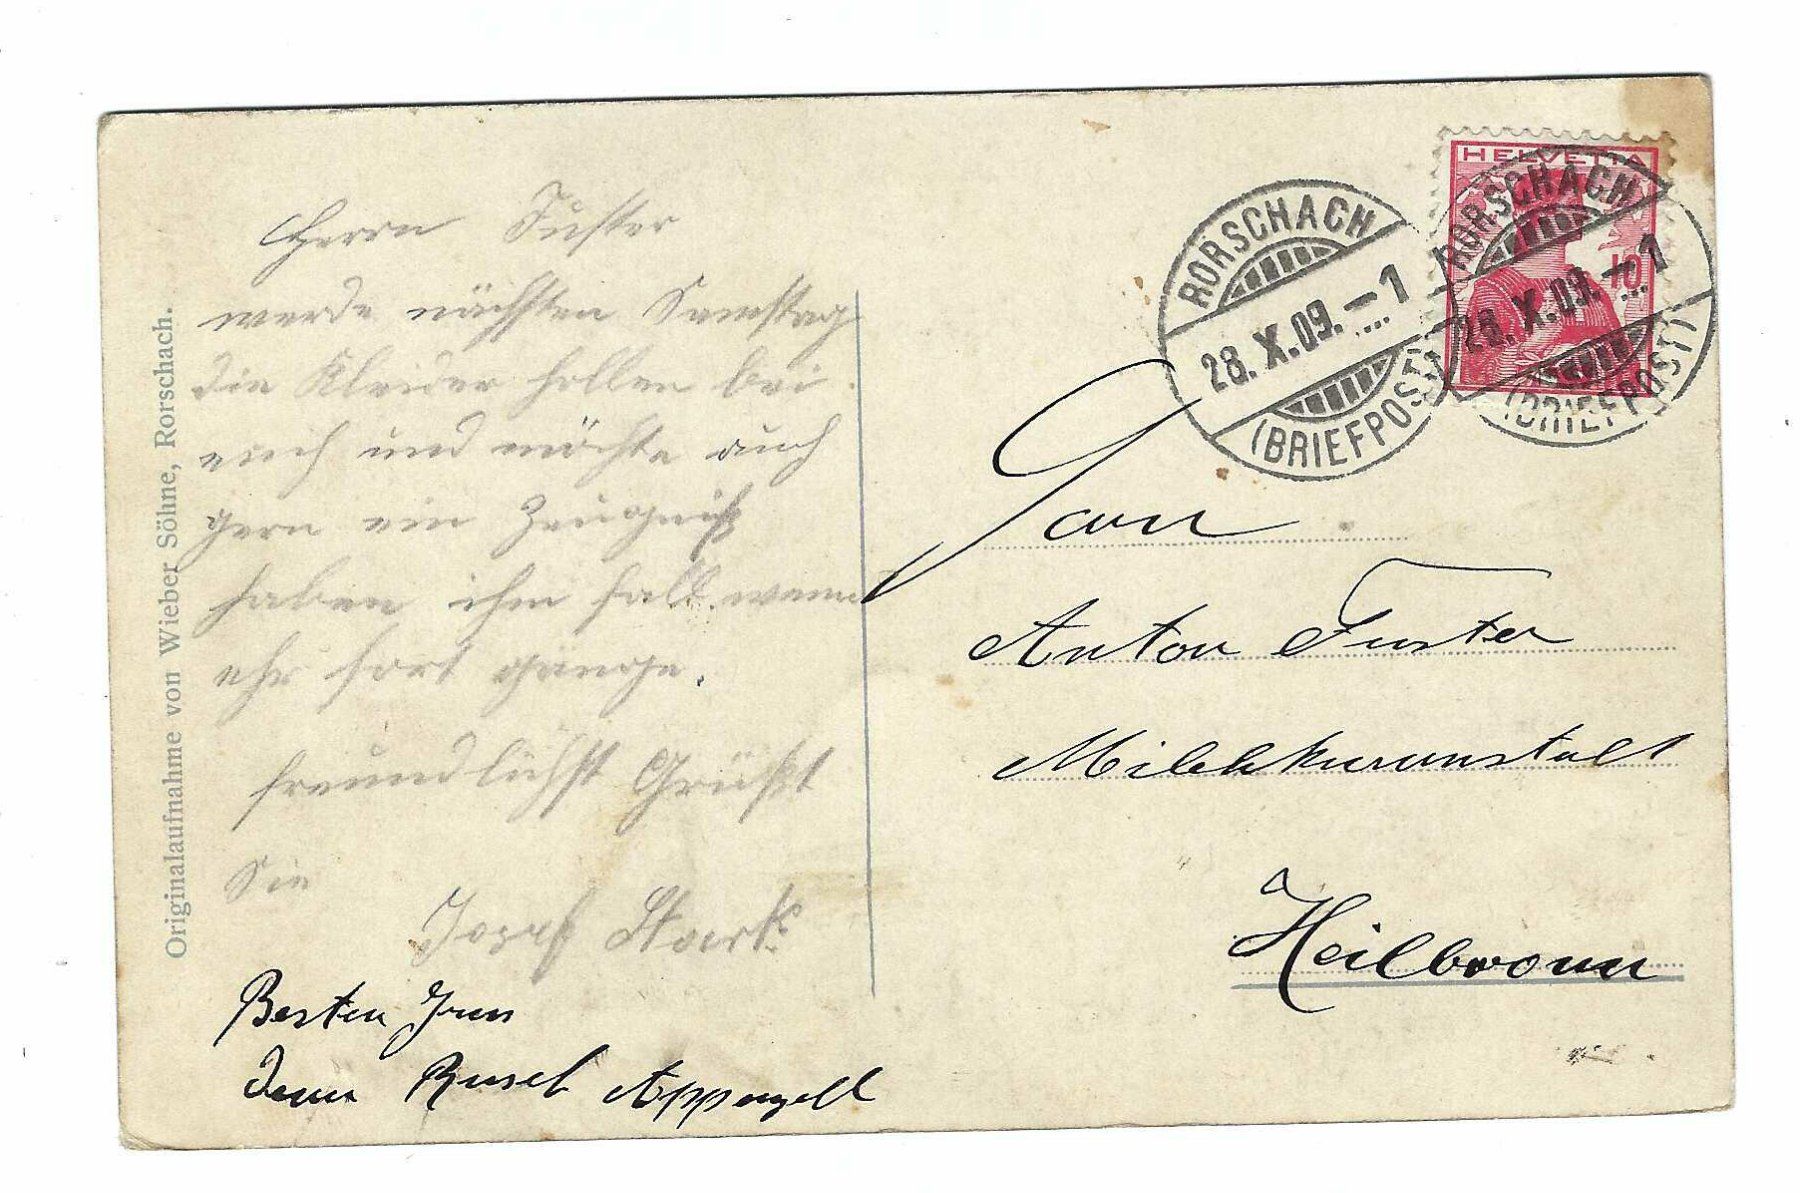 Originalaufnahme von Wieber Söhne, Rorschach.
Herrn Fuster
werde nächsten Samstag
die Kleider hollen bei
euch und möchte auch
gern ein Zeugniß
haben ihm fall wenn
ehr fort gange.
freundlichst Grüßt
Sie
Josef
Besten
Rusch Appenzell
HELVETIA
10
RORSCHACH
28.X.09.–1
(BRIEFPOST)
RORSCHACH
28.X.09.–1
(BRIEFPOST)
Anton Fuster
Milchkuranstalt
Heilbronn